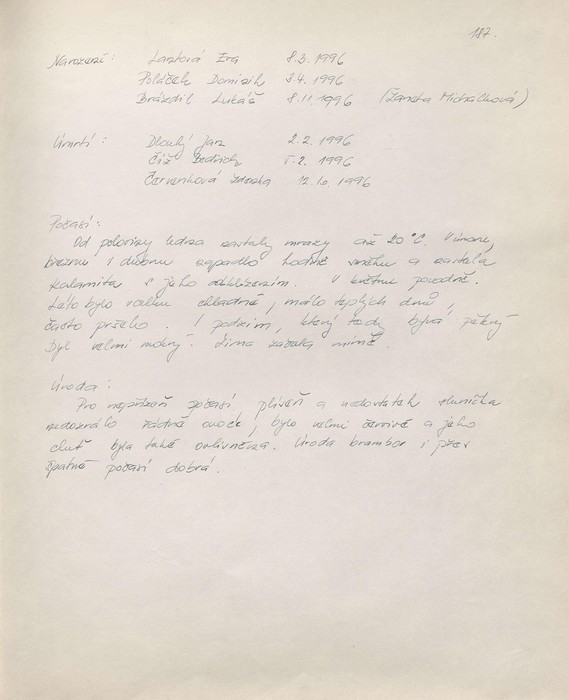 187.
Narození: Lantová Eva 8.3.1996
Poláček Dominik 3.4.1996
Brázdil Lukáš 8.11.1996 (Žaneta Michálková)
Úmrtí: Dlouhý Jan 2.2.1996
Číž Bedřich 5.2.1996
Červenková Zdenka 12.10.1996
Počasí:
Od poloviny ledna nastaly mrazy až 20°C. V únoru,
březnu i dubnu napadlo hodně sněhu a nastala
kalamita s jeho odklízením. V květnu povodně.
Léto bylo velmi chladné, málo teplých dnů,
často pršelo. I podzim, který tady bývá pěkný
byl velmi mokrý. Zima začala mírně.
Úroda:
Pro nepřízeň počasí, plíseň a nedostatek sluníčka
nedozrálo žádné ovoce, bylo velmi červivé a jeho
chuť byla také ovlivněna. Úroda brambor i přes
špatné počasí dobrá.